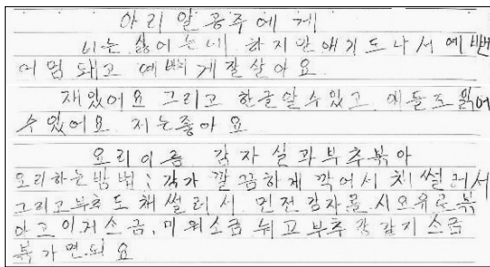 아리알공주에게
비는 싫어는데 하지만 애기도 나서 예뻐
어멈 돼고 예뻐게 잘 살아요
재있어요 그리고 한글 알 수 있고, 애들도 읽어
수 있어요. 저는 좋아요
요리이름 감자실과부추볶아
요리하는 방법 : 감가 깔끔하게 깍어서 채썰러서
그리고 부추도 채 썰러서. 먼전 감자를 시요유로 볶
아고 이거 소금, 미워소금 눠고 부추 강갈기 소금
볶가면 되요